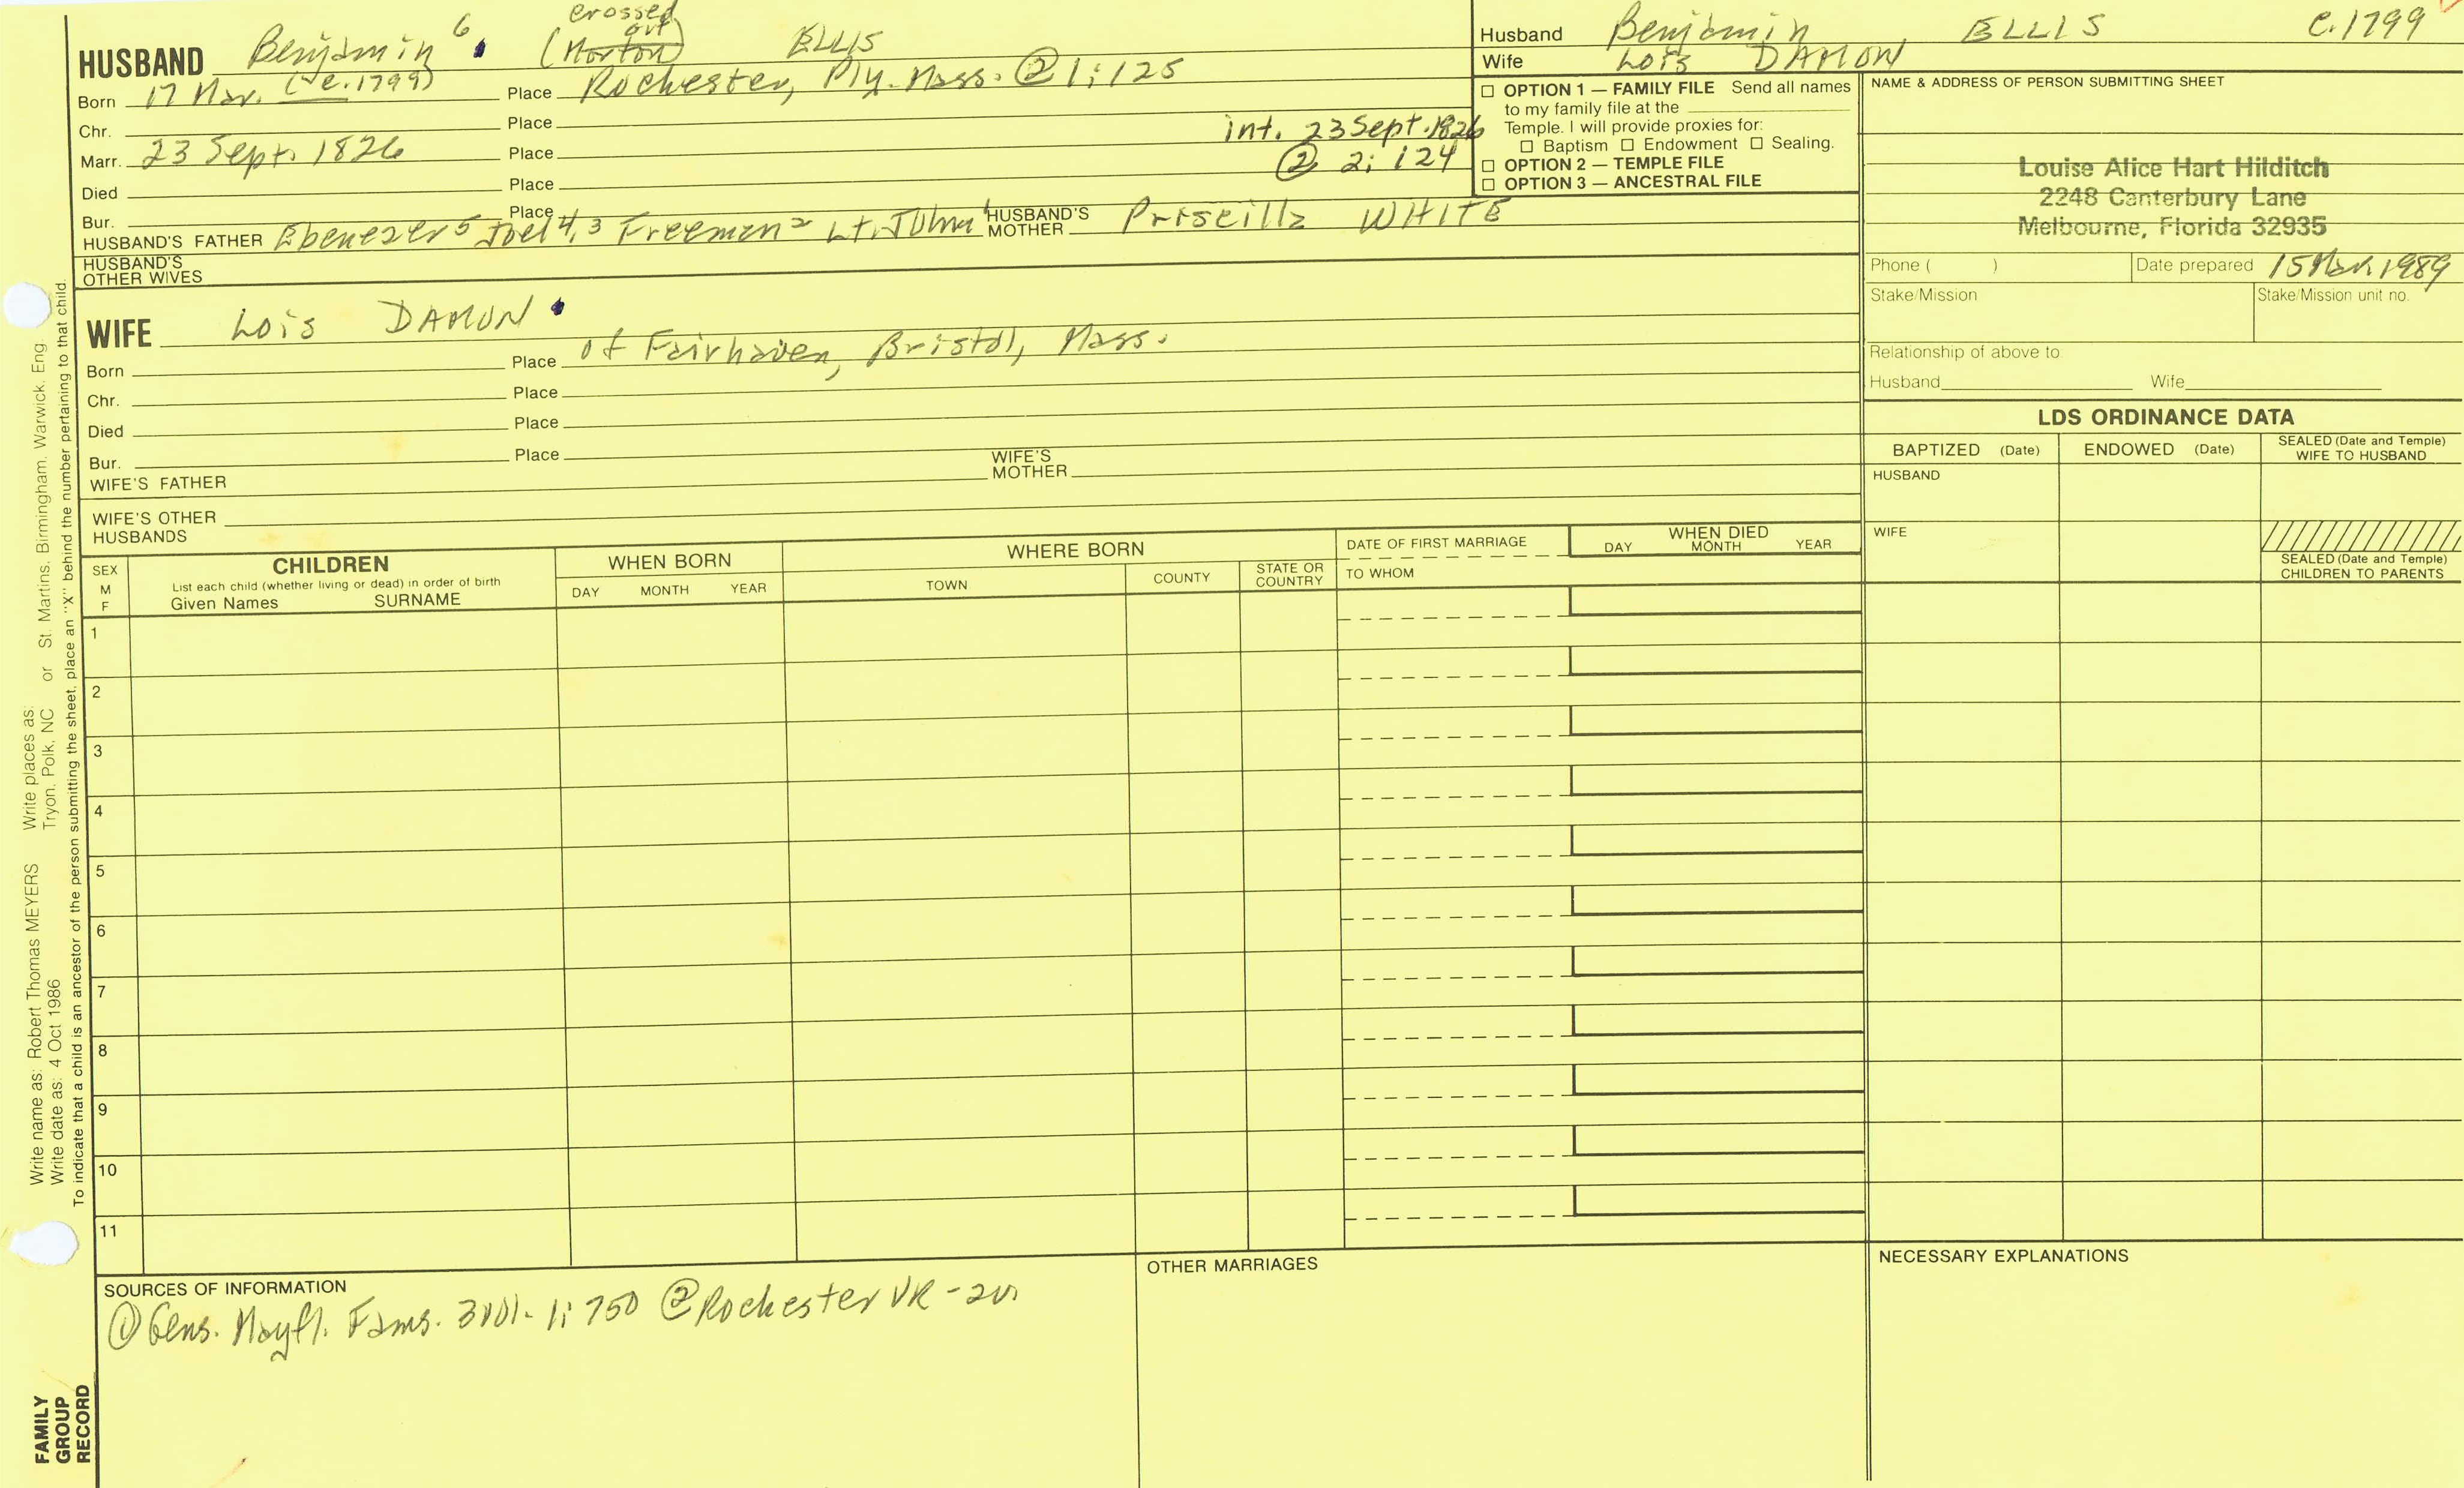 HUSBAND Benjamin 6 (Morton) crossed out ELLIS
Born 17 Mar. (c.1799) Place Rochester, Ply. Mass. @ 1:125
Chr. Place
int. 23 Sept. 1826
Marr. 23 Sept. 1826 Place ② 2:124
Died Place
Bur. Place
HUSBAND'S FATHER Ebenezer 5 Joel 4, 3 Freeman 2 Lt. John 1 HUSBAND'S MOTHER Priscilla WHITE
HUSBAND'S OTHER WIVES
WIFE Lois DAMON
Born Place of Fairhaven, Bristol, Mass.
Chr. Place
Died Place
Bur. Place
WIFE'S FATHER WIFE'S MOTHER
WIFE'S OTHER HUSBANDS
Husband Benjamin ELLIS c.1799
Wife Lois DAMON
☐ OPTION 1 — FAMILY FILE Send all names
to my family file at the
Temple. I will provide proxies for:
☐ Baptism ☐ Endowment ☐ Sealing.
☐ OPTION 2 — TEMPLE FILE
☐ OPTION 3 — ANCESTRAL FILE
NAME & ADDRESS OF PERSON SUBMITTING SHEET
Louise Alice Hart Hilditch
2248 Canterbury Lane
Melbourne, Florida 32935
Phone ( ) Date prepared 15 Mar. 1989
Stake/Mission Stake/Mission unit no.
Relationship of above to
Husband Wife
LDS ORDINANCE DATA
BAPTIZED (Date) ENDOWED (Date) SEALED (Date and Temple) WIFE TO HUSBAND
HUSBAND
WIFE
SEALED (Date and Temple) CHILDREN TO PARENTS
SEX M F
CHILDREN
List each child (whether living or dead) in order of birth
Given Names SURNAME
WHEN BORN
DAY MONTH YEAR
WHERE BORN
TOWN COUNTY STATE OR COUNTRY
DATE OF FIRST MARRIAGE
TO WHOM
WHEN DIED
DAY MONTH YEAR
1
2
3
4
5
6
7
8
9
10
11
SOURCES OF INFORMATION
① Gens. Mayfl. Fams. 3vol. 1:750 ② Rochester VR-2v
OTHER MARRIAGES
NECESSARY EXPLANATIONS
Write name as: Robert Thomas MEYERS Write places as: St. Martins, Birmingham, Warwick, Eng.
Write date as: 4 Oct 1986 Tryon, Polk, NC or
To indicate that a child is an ancestor of the person submitting the sheet, place an "X" behind the number pertaining to that child.
FAMILY
GROUP
RECORD